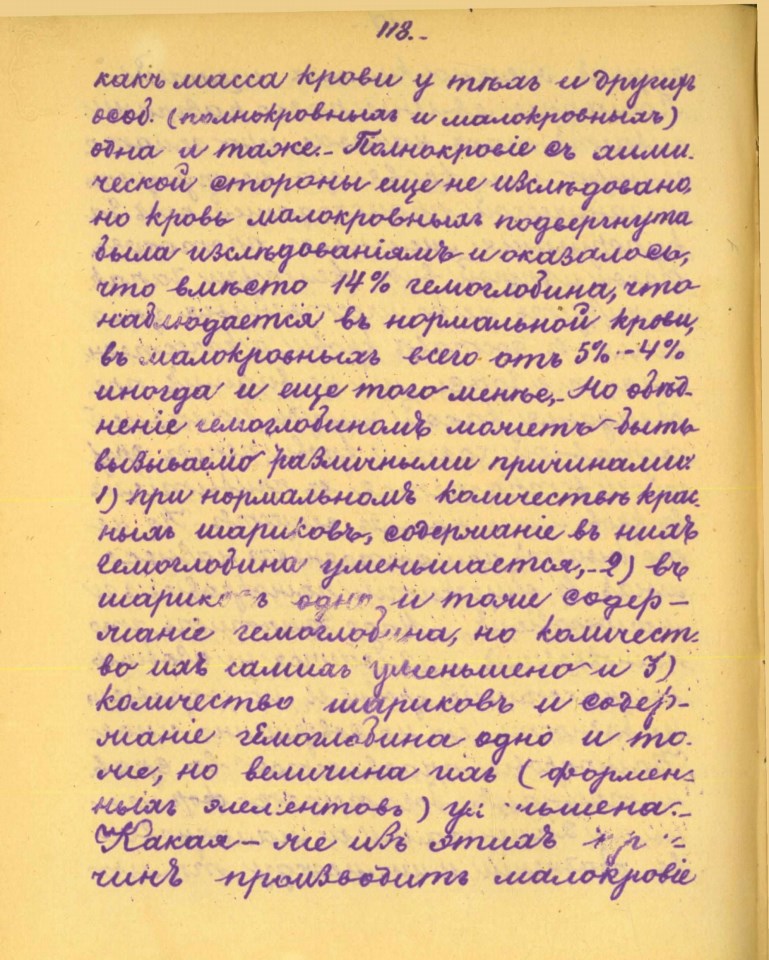 118.-
какъ масса крови у тѣхъ и другихъ
особ. (полнокровныхъ и малокровныхъ)
одна и таже.- Полнокровіе съ хими-
ческой стороны еще не изслѣдовано,
но кровь малокровныхъ подвергнута
была изслѣдованіямъ и оказалось,
что вмѣсто 14% гемоглобина, что
наблюдается въ нормальной крови,
въ малокровныхъ всего отъ 5%-4%
иногда и еще того менѣе,- Но обѣд-
неніе гемоглобиномъ можетъ быть
вызываемо различными причинами:
1) при нормальномъ количествѣ крас-
ныхъ шариковъ, содержаніе въ нихъ
гемоглобина уменьшается,- 2) въ
шарикахъ одно и тоже содер-
жаніе гемоглобина, но количест-
во ихъ самихъ уменьшено и 3)
количество шариковъ и содер-
жаніе гемоглобина одно и то-
же, но величина ихъ (формен-
ныхъ элементовъ) уменьшена.-
Какая-же изъ этихъ при-
чинъ производитъ малокровіе